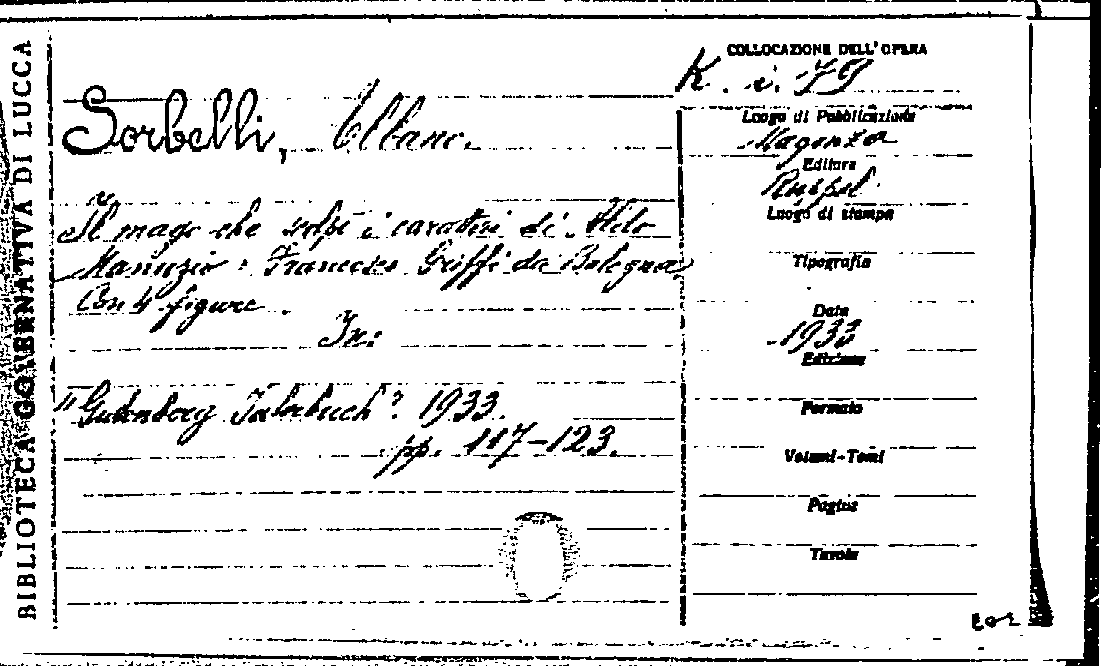 BIBLIOTECA GOVERNATIVA DI LUCCA
COLLOCAZIONE DELL'OPERA
K. i. 79
Sorbelli, Albano.
Il mago che scolpì i caratteri di Aldo
Manuzio: Francesco Griffi da Bologna
Con 4 figure.
In:
"Gutenberg Jahrbuch". 1933.
pp. 117-123.
Luogo di Pubblicazione
Magonza
Editore
Ruppel
Luogo di stampa
Tipografia
Data
1933
Edizione
Formato
Volumi-Tomi
Pagine
Tavole